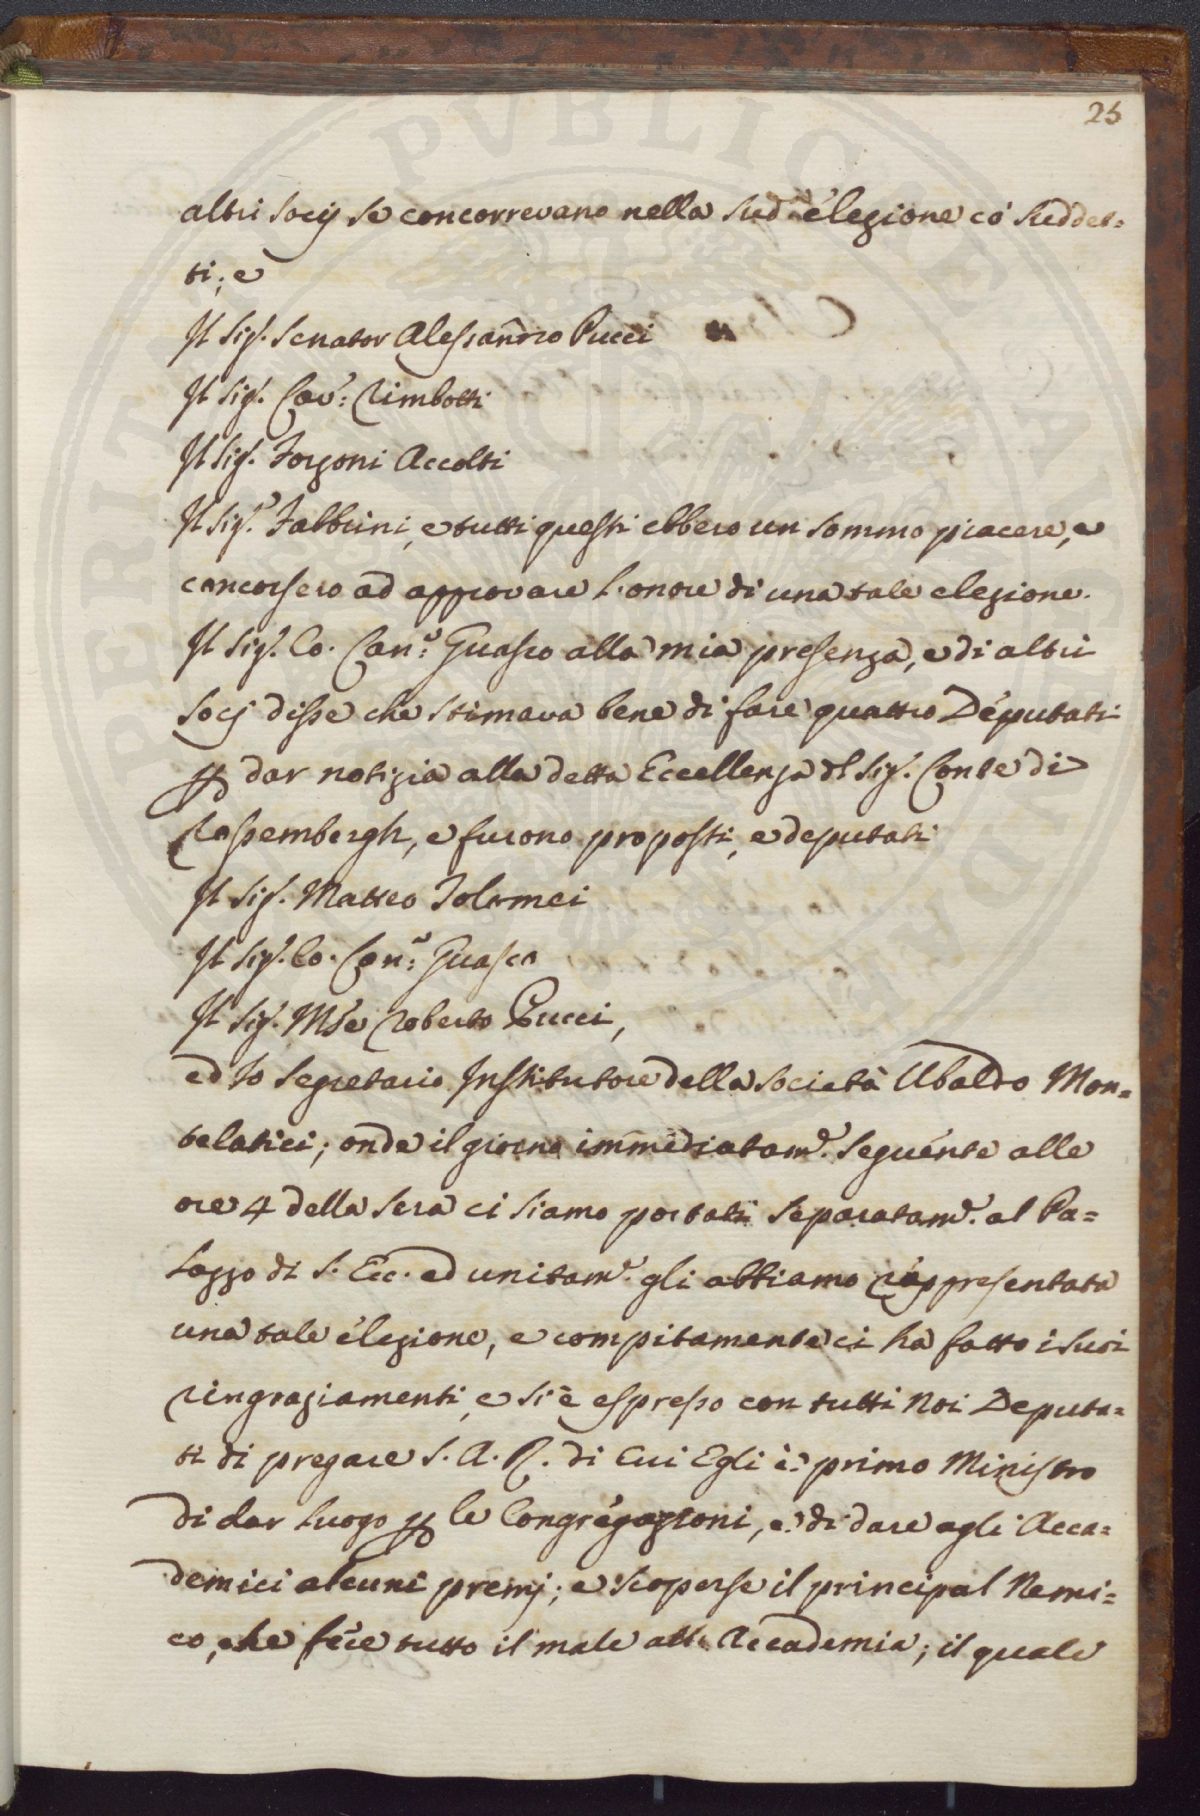 25
altri Socij se concorrevano nella Sud.ª élezione co' Suddet=
ti; e
Il Sig.r Senator Alessandro Pucci
Il Sig.r Cav.r: Rimbotti
Il Sig.r Forzoni Accolti
Il Sig.r Fabbrini, e tutti questi ebbero un sommo piacere, e
concorsero ad approvare l'onore di una tale elezione.
Il Sig.r Co. Can.co: Guasco alla mia presenza, e di altri
Socj disse che stimava bene di fare quattro Députati
p dar notizia alla detta Eccellenza del Sig.r Conte di
Rossembergh, e furono proposti, e deputati
Il Sig.r Matteo Tolomei
Il Sig.r Co. Can.co: Guasco
Il Sig.r Mse Roberto Pucci,
ed Io Segretario Institutore della Società Ubaldo Mon=
telatici; onde il giorno immediatam.e seguénte alle
ore 4 della Sera ci siamo portati separatam.e al Pa=
lazzo di S. Ecc. ed unitam.e gli abbiamo rappresentata
una tale élezione, e compitamente ci ha fatto i suoi
ringraziamenti, e si è espresso con tutti Noi Deputa=
ti di pregare S. A. R. di Cui Egli è primo Ministro
di dar luogo p le Congrégazioni, e di dare agli Acca=
demici alcuni premj; e scoperse il principal Nemi=
co, che féce tutto il male alla Accademia; il quale
PVBLICE
VERITATI